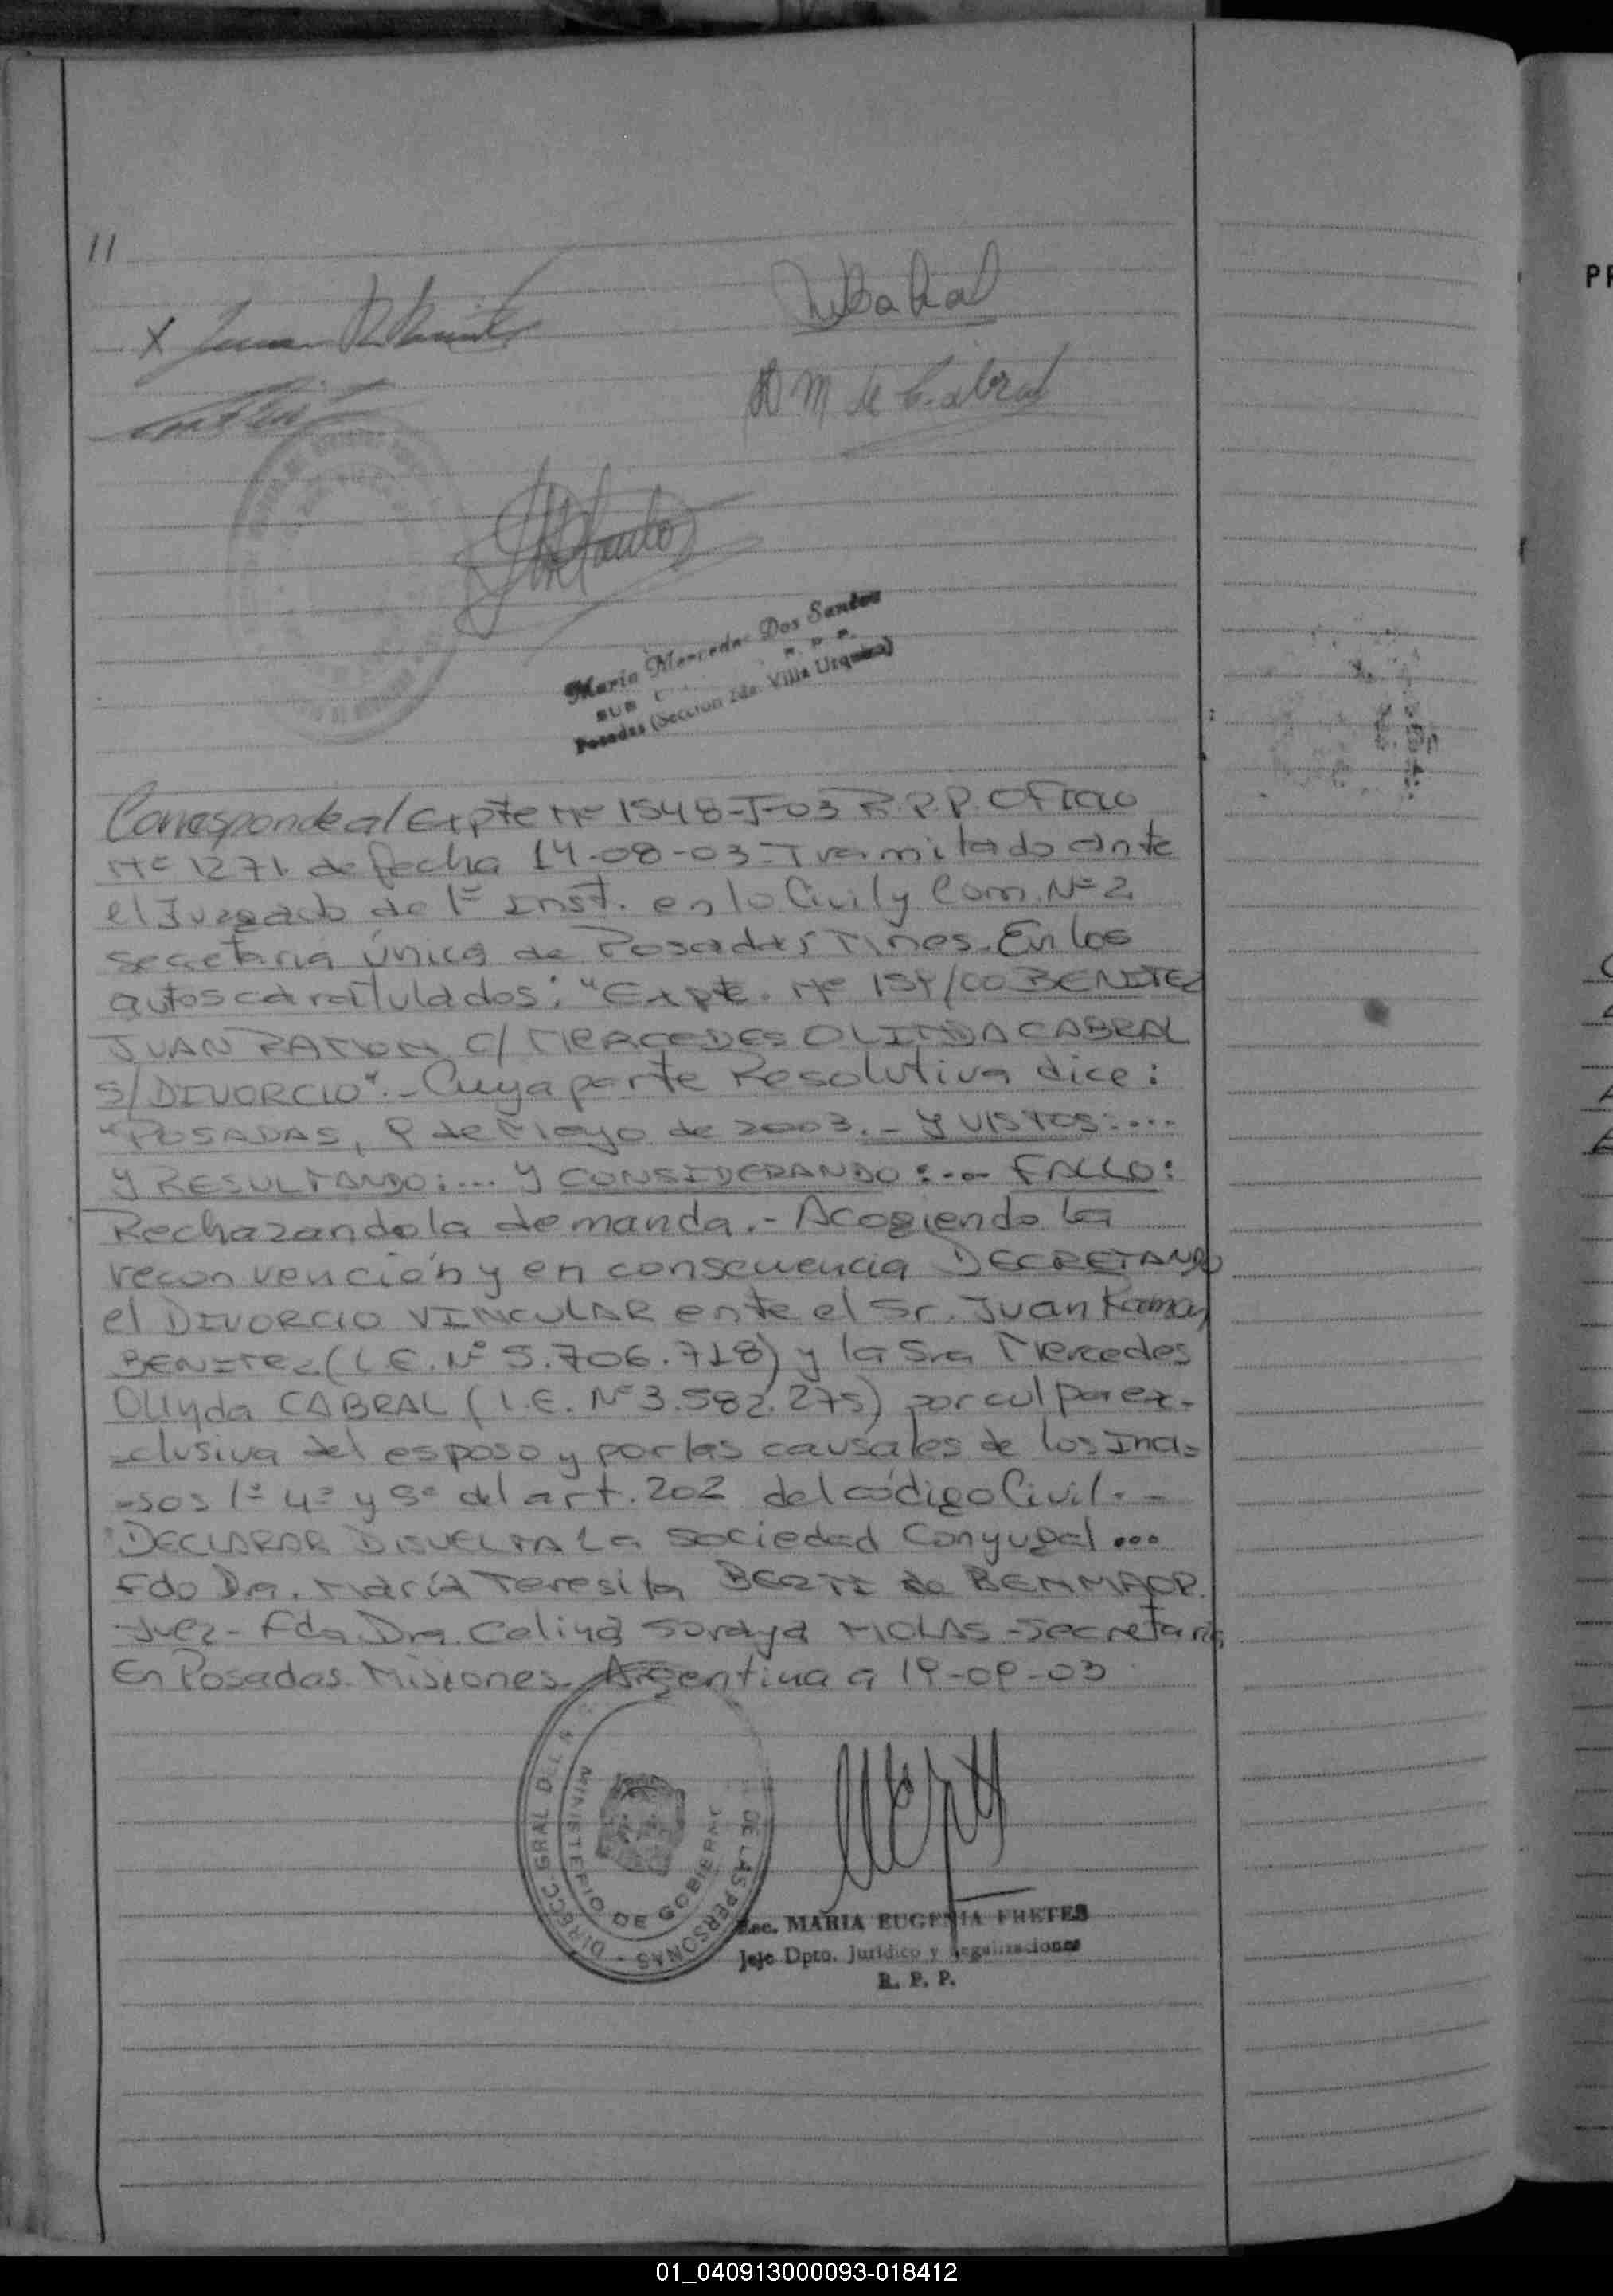 11
x Juan R Benitez
M de Cabral
Maria Mercedes Dos Santos
SUB
Posadas (Sección 2da. Villa Urquiza)
Corresponde al Expte Nº 1548-J-03 R.P.P. Oficio
Nº 1271 de fecha 14-08-03-Tramitado ante
el Juzgado de 1ª Inst. en lo Civil y Com. Nº 2
secretaria única de Posadas, Mnes. En los
autos caratulados: "Expte. Nº 154/00 BENITEZ
JUAN RAMON C/ MERCEDES OLINDA CABRAL
S/DIVORCIO".- Cuya parte Resolutiva dice:
"POSADAS, 9 de Mayo de 2003.- Y VISTOS:...
Y RESULTANDO:... Y CONSIDERANDO:... FALLO:
Rechazando la demanda.- Acogiendo la
reconvención y en consecuencia DECRETANDO
el DIVORCIO VINCULAR ente el Sr. Juan Ramon
BENITEZ (L.E. Nº 5.706.718) y la Sra Mercedes
Olinda CABRAL (L.E. Nº 3.582.275) por culpa ex-
-clusiva del esposo y por las causales de los Inci-
-sos 1º 4º y 5º del art. 202 del código Civil.-
DECLARAR DISUELTA La sociedad Conyugal...
Fdo Dra. María Teresita BERTI de BENMAOR.
Juez- Fdo Dra. Celina Soraya MOLAS-Secretaria
En Posadas. Misiones. Argentina a 19-09-03
DIRECC. GRAL DEL R
DE LAS PERSONAS
MINISTERIO DE GOBIERNO
Esc. MARIA EUGENIA FRETES
Jefe Dpto. Jurídico y Legalizaciones
R. P. P.
01_040913000093-018412